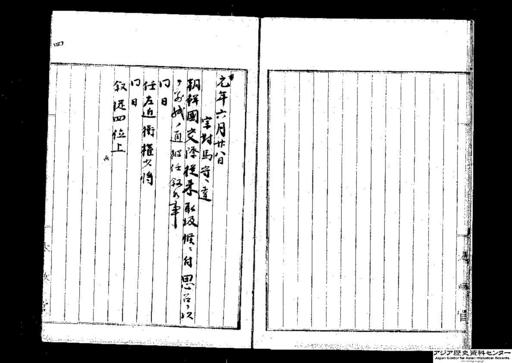 元年六月廿八日
宗対馬守ヘ達
朝鮮國交際従来取扱候ニ付思召ヲ以
テ別紙ノ通被任叙候事
同日
任左近衛権少将
同日
叙従四位上
四
アジア歴史資料センター
Japan Center for Asian Historical Records